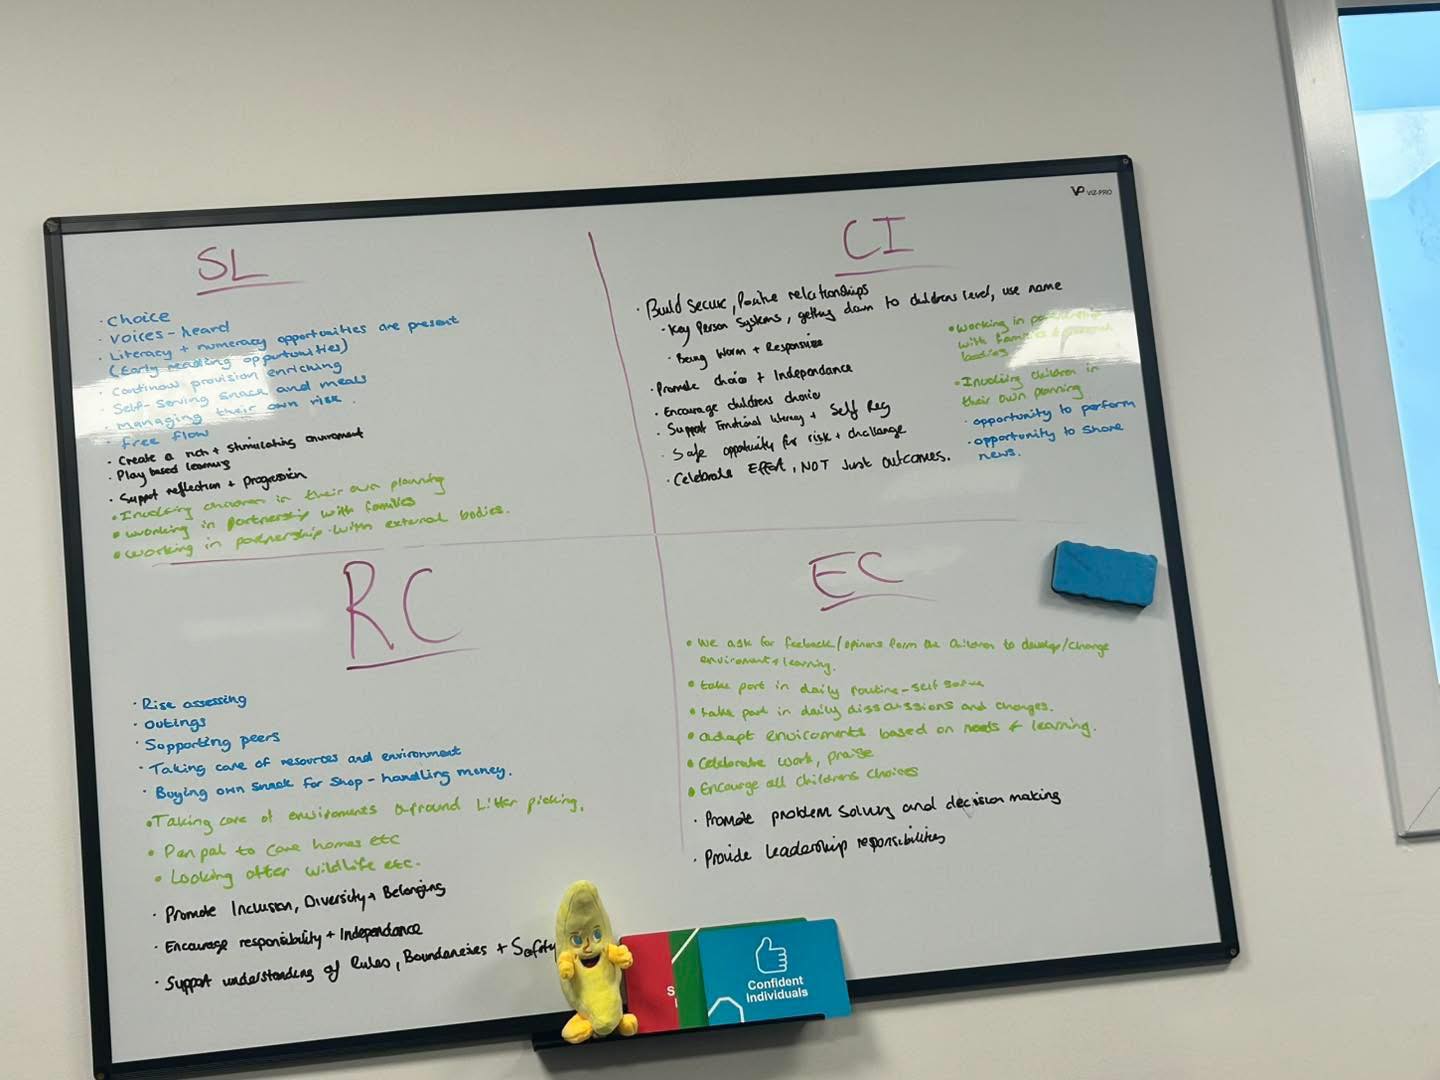 VP VIZ-PRO
SL
· Choice
· Voices - heard
· Literacy + numeracy opportunities are present
(Early reading opportunities)
· Continow provision enriching
· Self-serving snack and meals
· managing their own risk.
· free flow
· Create a rich + stimulating enviroment
· Play based learning
· Support reflection + progression
• Involving children in their own planning
• working in partnership with families
• working in partnership with external bodies.
CI
· Build secure, Positive relationships
· Key Person Systems, getting down to childrens level, use name
· Being Warm + Responsive
· Promote choice + Independance
· Encourage childrens choice
· Support Emotional literacy + Self Reg
· Safe opportunity for risk + challenge
· Celebrate Effort, NOT Just outcomes.
• working in partnership
with families &
bodies
• Involving children in
their own planning
· opportunity to perform
· opportunity to share
news.
RC
· Rise assessing
· outings
· Supporting peers
· Taking care of resources and environment
· Buying own snack for shop - handling money.
• Taking care of enviroments around Litter picking.
• Pen pal to care homes etc
• Looking after wildlife etc.
· Promote Inclusion, Diversity + Belonging
· Encourage responsibility + Independance
· Support understanding of Rules, Boundaries + Safety
EC
• We ask for feeback/opinions form the Children to develop/change
enviroment + learning.
• take part in daily routine - self serve
• take part in daily disscussions and changes.
• adapt enviroments based on needs & learning.
• Celebrate work, praise
• Encourge all childrens choices
· Promote problem solving and decision making
· Provide leadership responsibilities
S
Confident
Individuals